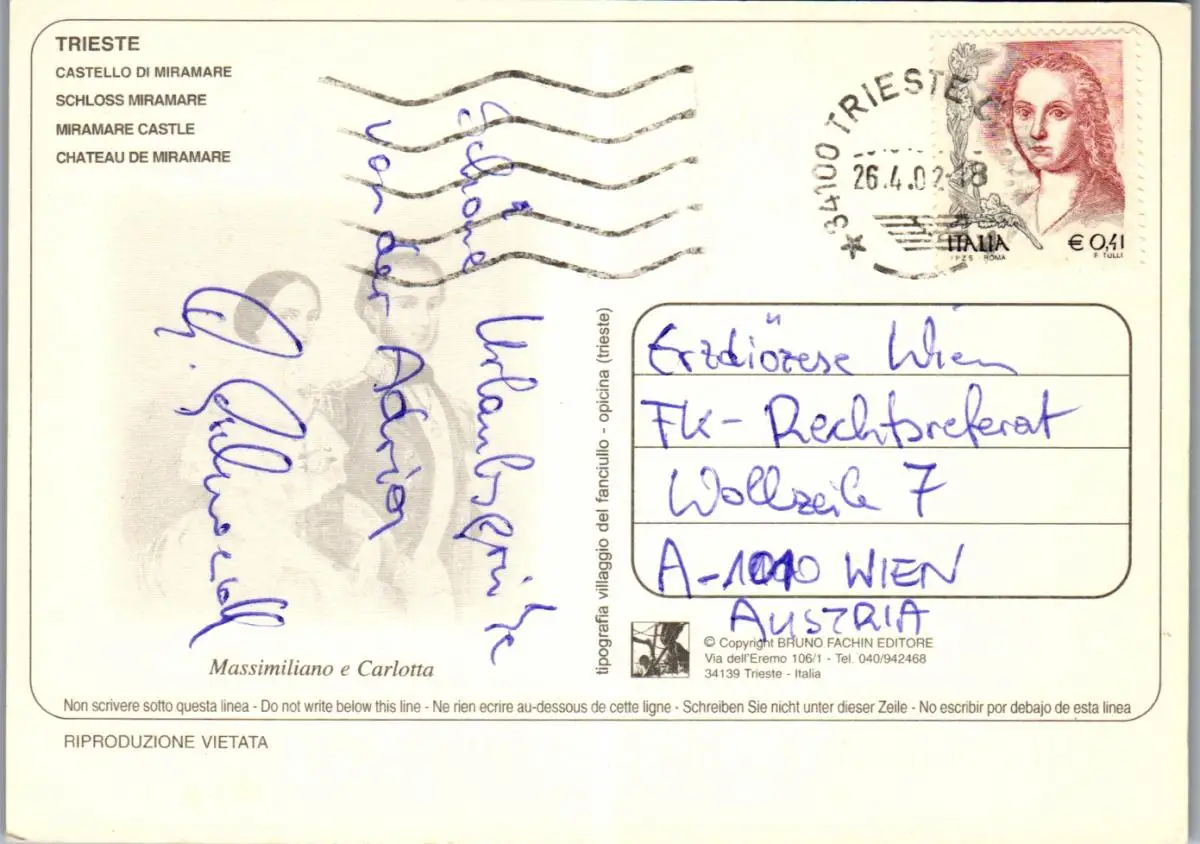 TRIESTE
CASTELLO DI MIRAMARE
SCHLOSS MIRAMARE
MIRAMARE CASTLE
CHATEAU DE MIRAMARE
34100 TRIESTE C
26.4.02-18
ITALIA
€ 0,41
I.P.Z.S. ROMA
F. TULLI
Schöne Urlaubsgrüße
von der Adria
Erzdiözese Wien
FK-Rechtsreferat
Wollzeile 7
A-1010 WIEN
AUSTRIA
tipografia villaggio del fanciullo - opicina (trieste)
© Copyright BRUNO FACHIN EDITORE
Via dell'Eremo 106/1 - Tel. 040/942468
34139 Trieste - Italia
Massimiliano e Carlotta
Non scrivere sotto questa linea - Do not write below this line - Ne rien ecrire au-dessous de cette ligne - Schreiben Sie nicht unter dieser Zeile - No escribir por debajo de esta linea
RIPRODUZIONE VIETATA